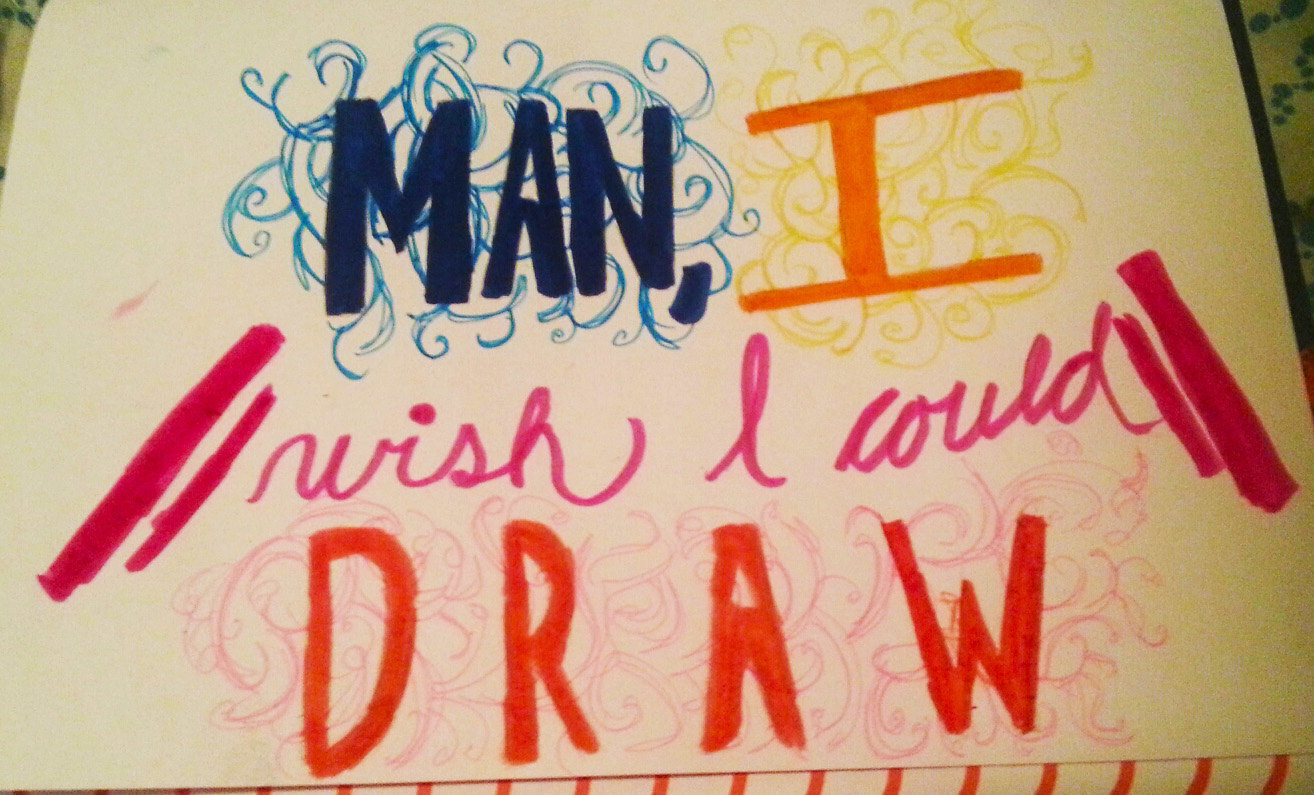 MAN, I
wish I could
DRAW